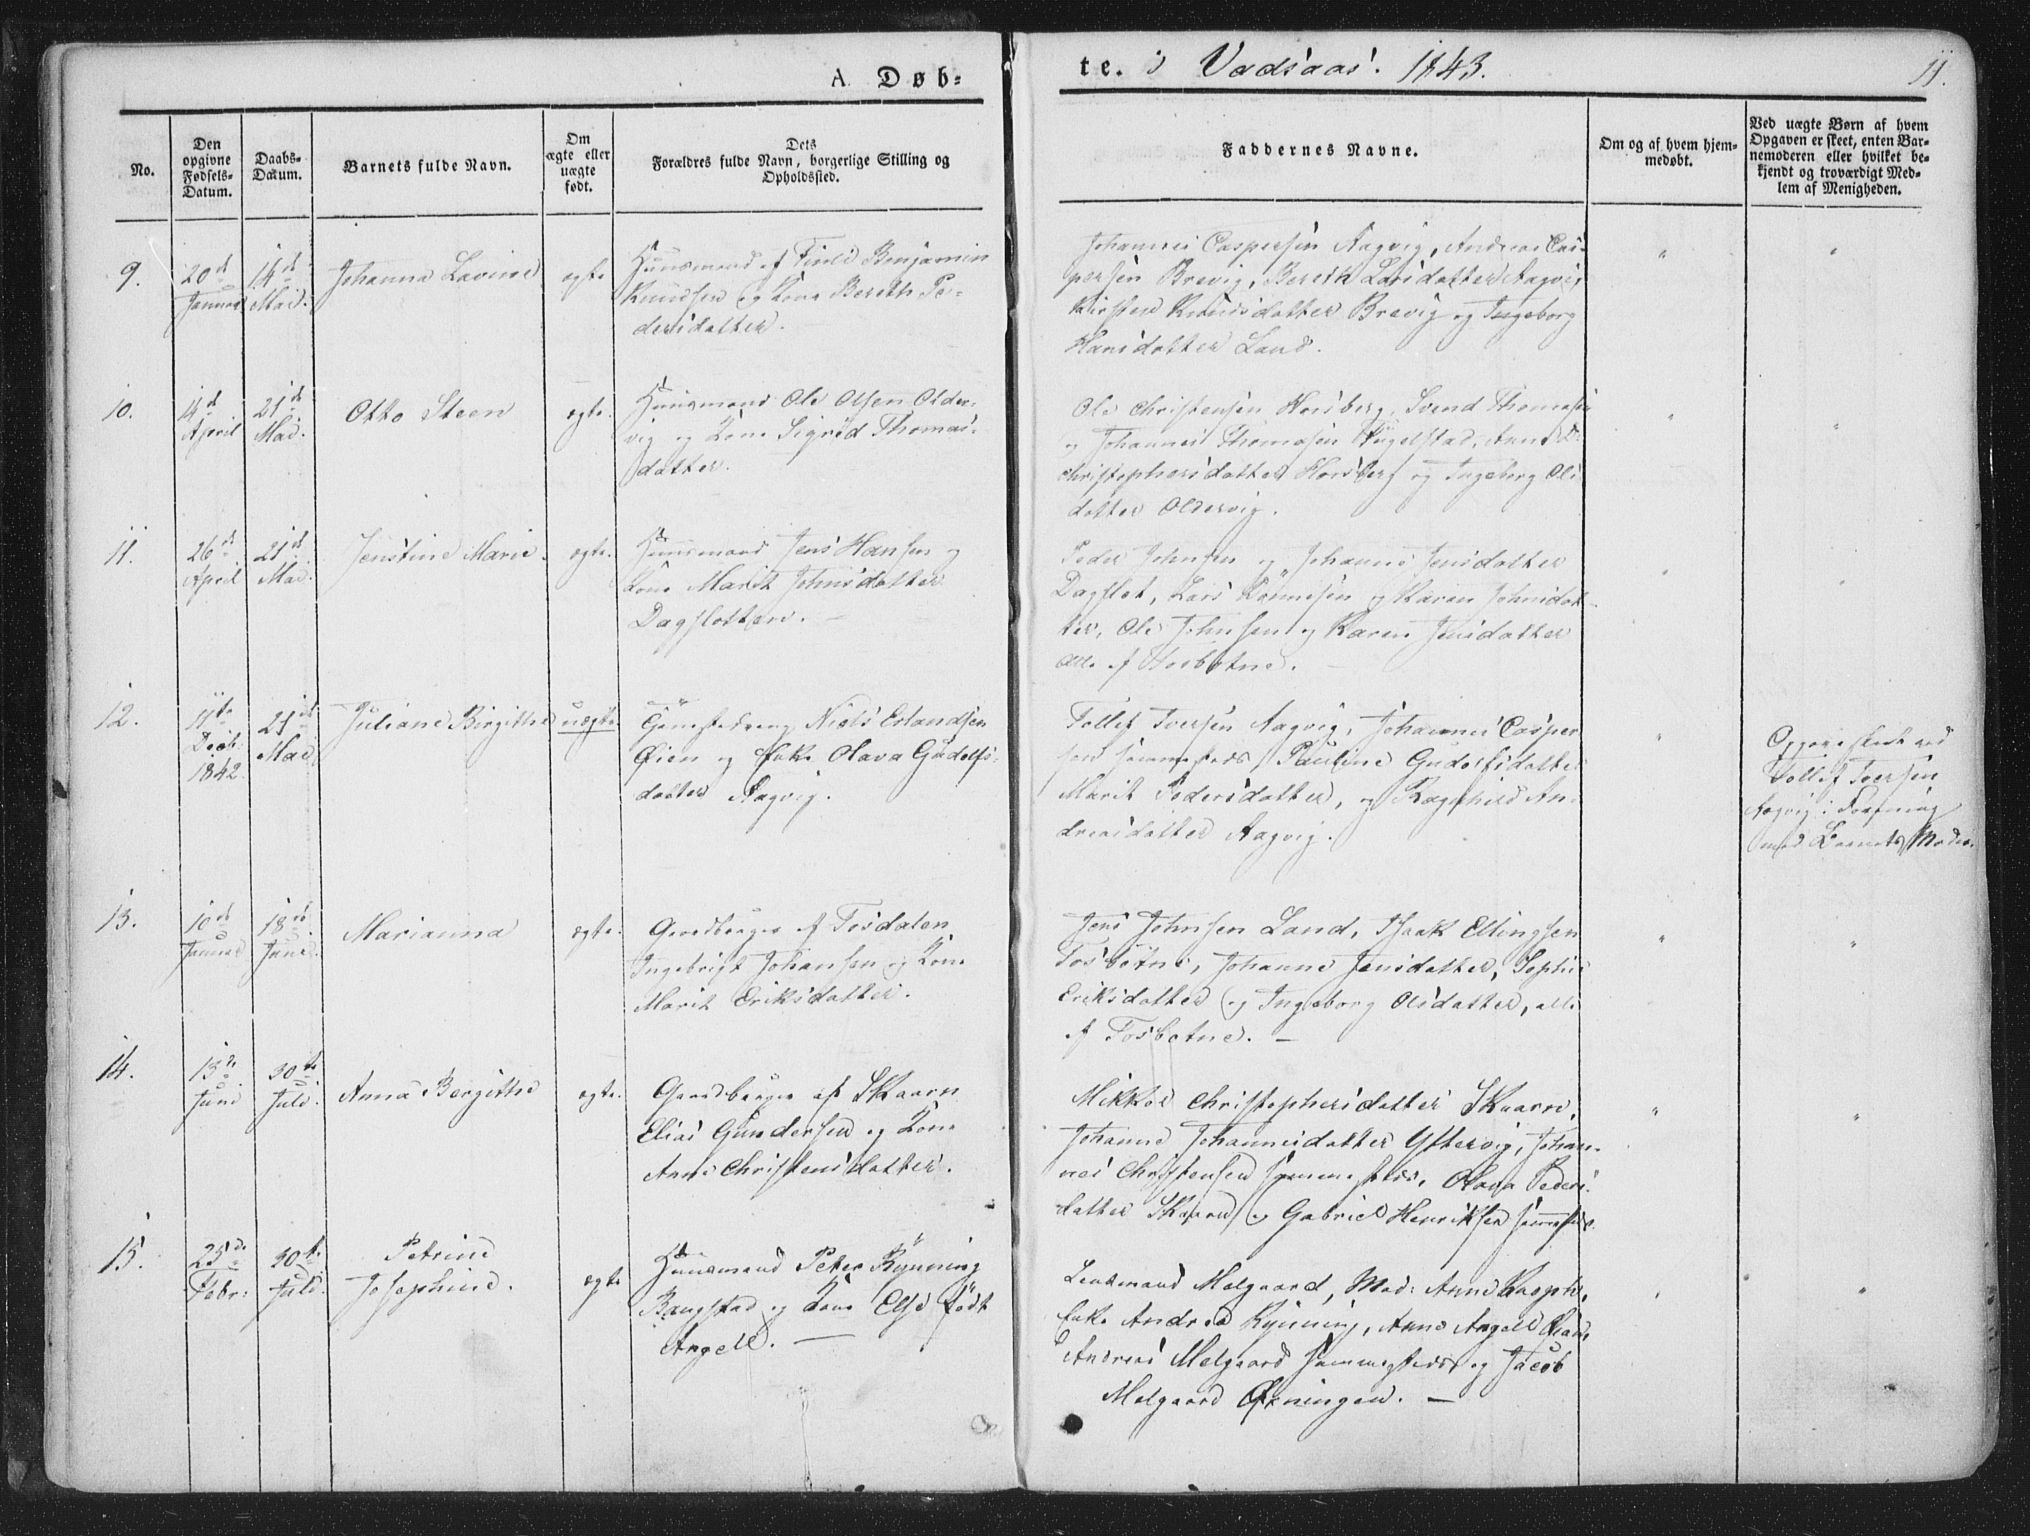 A. Døb-
te. i Vadsaas. 1843.
11.
No.
Den
opgivne
Fødsels-
Datum.
Daabs-
Datum.
Barnets fulde Navn.
Om
ægte eller
uægte
født.
Dets
Forældres fulde Navn, borgerlige Stilling og
Opholdssted.
Faddernes Navne.
Om og af hvem hjem-
medøbt.
Ved uægte Børn af hvem
Opgaven er skeet, enten Bar-
nemoderen eller hvilket be-
kjendt og troværdigt Med-
lem af Menigheden.
9.
20de
Januar
14de
Mai.
Johanna Lavine
egte
Huusmand af
Benjamin
Knudsen og Kone Bereth Pe-
dersdatter.
Johannes Caspersen Aagvig, Andreas Cas-
persen Brevig, Bereth Larsdatter Aagvig
Kirsten Knudsdatter Brevig og Ingeborg
Hansdatter Land.
"
"
10.
14de
April
21de
Mai.
Otto Steen
egte.
Huusmand Ole Olsen Older-
vig og Kone Sigrid Thomas-
datter.
Ole Christensen Horsberg, Svend Thomasen
og Johannes Thomasen
Christophersdatter Horsberg og Ingeborg Ols
datter Oldervig.
"
"
11.
26de
April
21de
Mai.
Jenstine Marie.
egte.
Huusmand Jens Hansen og
Kone Marit Johnsdatter
Dagslotten. —
Peder Johnsen og Johanne Jensdatter
Dagslot, Lars
og Karen Johnsdat-
ter, Ole Johnsen og Karen Jensdatter
alle af Tosbotne.
"
"
12.
11te
Decb.
1842
21de
Mai
Juliane Birgitthe
uægte.
Tjenestedreng Niels Erlandsen
Øien og Enke Olava Gudolfs-
datter Aagvig.
Tollef Iversen Aagvig, Johannes Casper
sen sammesteds, Pauline Gudolfsdatter
Marit Pedersdatter, og Ragnhild An-
dreasdatter Aagvig.
"
Opgave skeet ved
Tollef Iversen
Aagvig i Forening
med Barnets Moder.
13.
10de
Januar
18de
Juni.
Marianna
egte.
Gaardbruger af Tosdalen
Ingebrigt Johansen og Kone
Marit Eriksdatter.
Jens Johnsen Land, Isaak Ellingsen
Tosbotne, Johanne Jensdatter, Sophie
Eriksdatter og Ingeborg Olsdatter, alle
af Tosbotne. —
"
"
14.
13de
Juni
30te
Juli.
Anna Bergitthe
egte.
Gaardbruger af Skaarn
Elias Gundersen og Kone
Anne Christensdatter.
Mikkel Christophersdatter Skaarn,
Johanne Johannesdatter Yttervig, Johan-
nes Christensen sammesteds, Olava Peders-
datter Skaarn, og Gabriel Henriksen sammesteds.
"
"
15.
25de
Febr.
30te
Juli.
Petrine
Josephine.
egte
Huusmand Peter Rynning
Bangstad og Kone Else født
Angell. —
Lensmand Melgaard, Mad:
Enke Andrea Rynning, Anne Angell
Andreas Melgaard sammesteds og Jacob
Melgaard
"
"